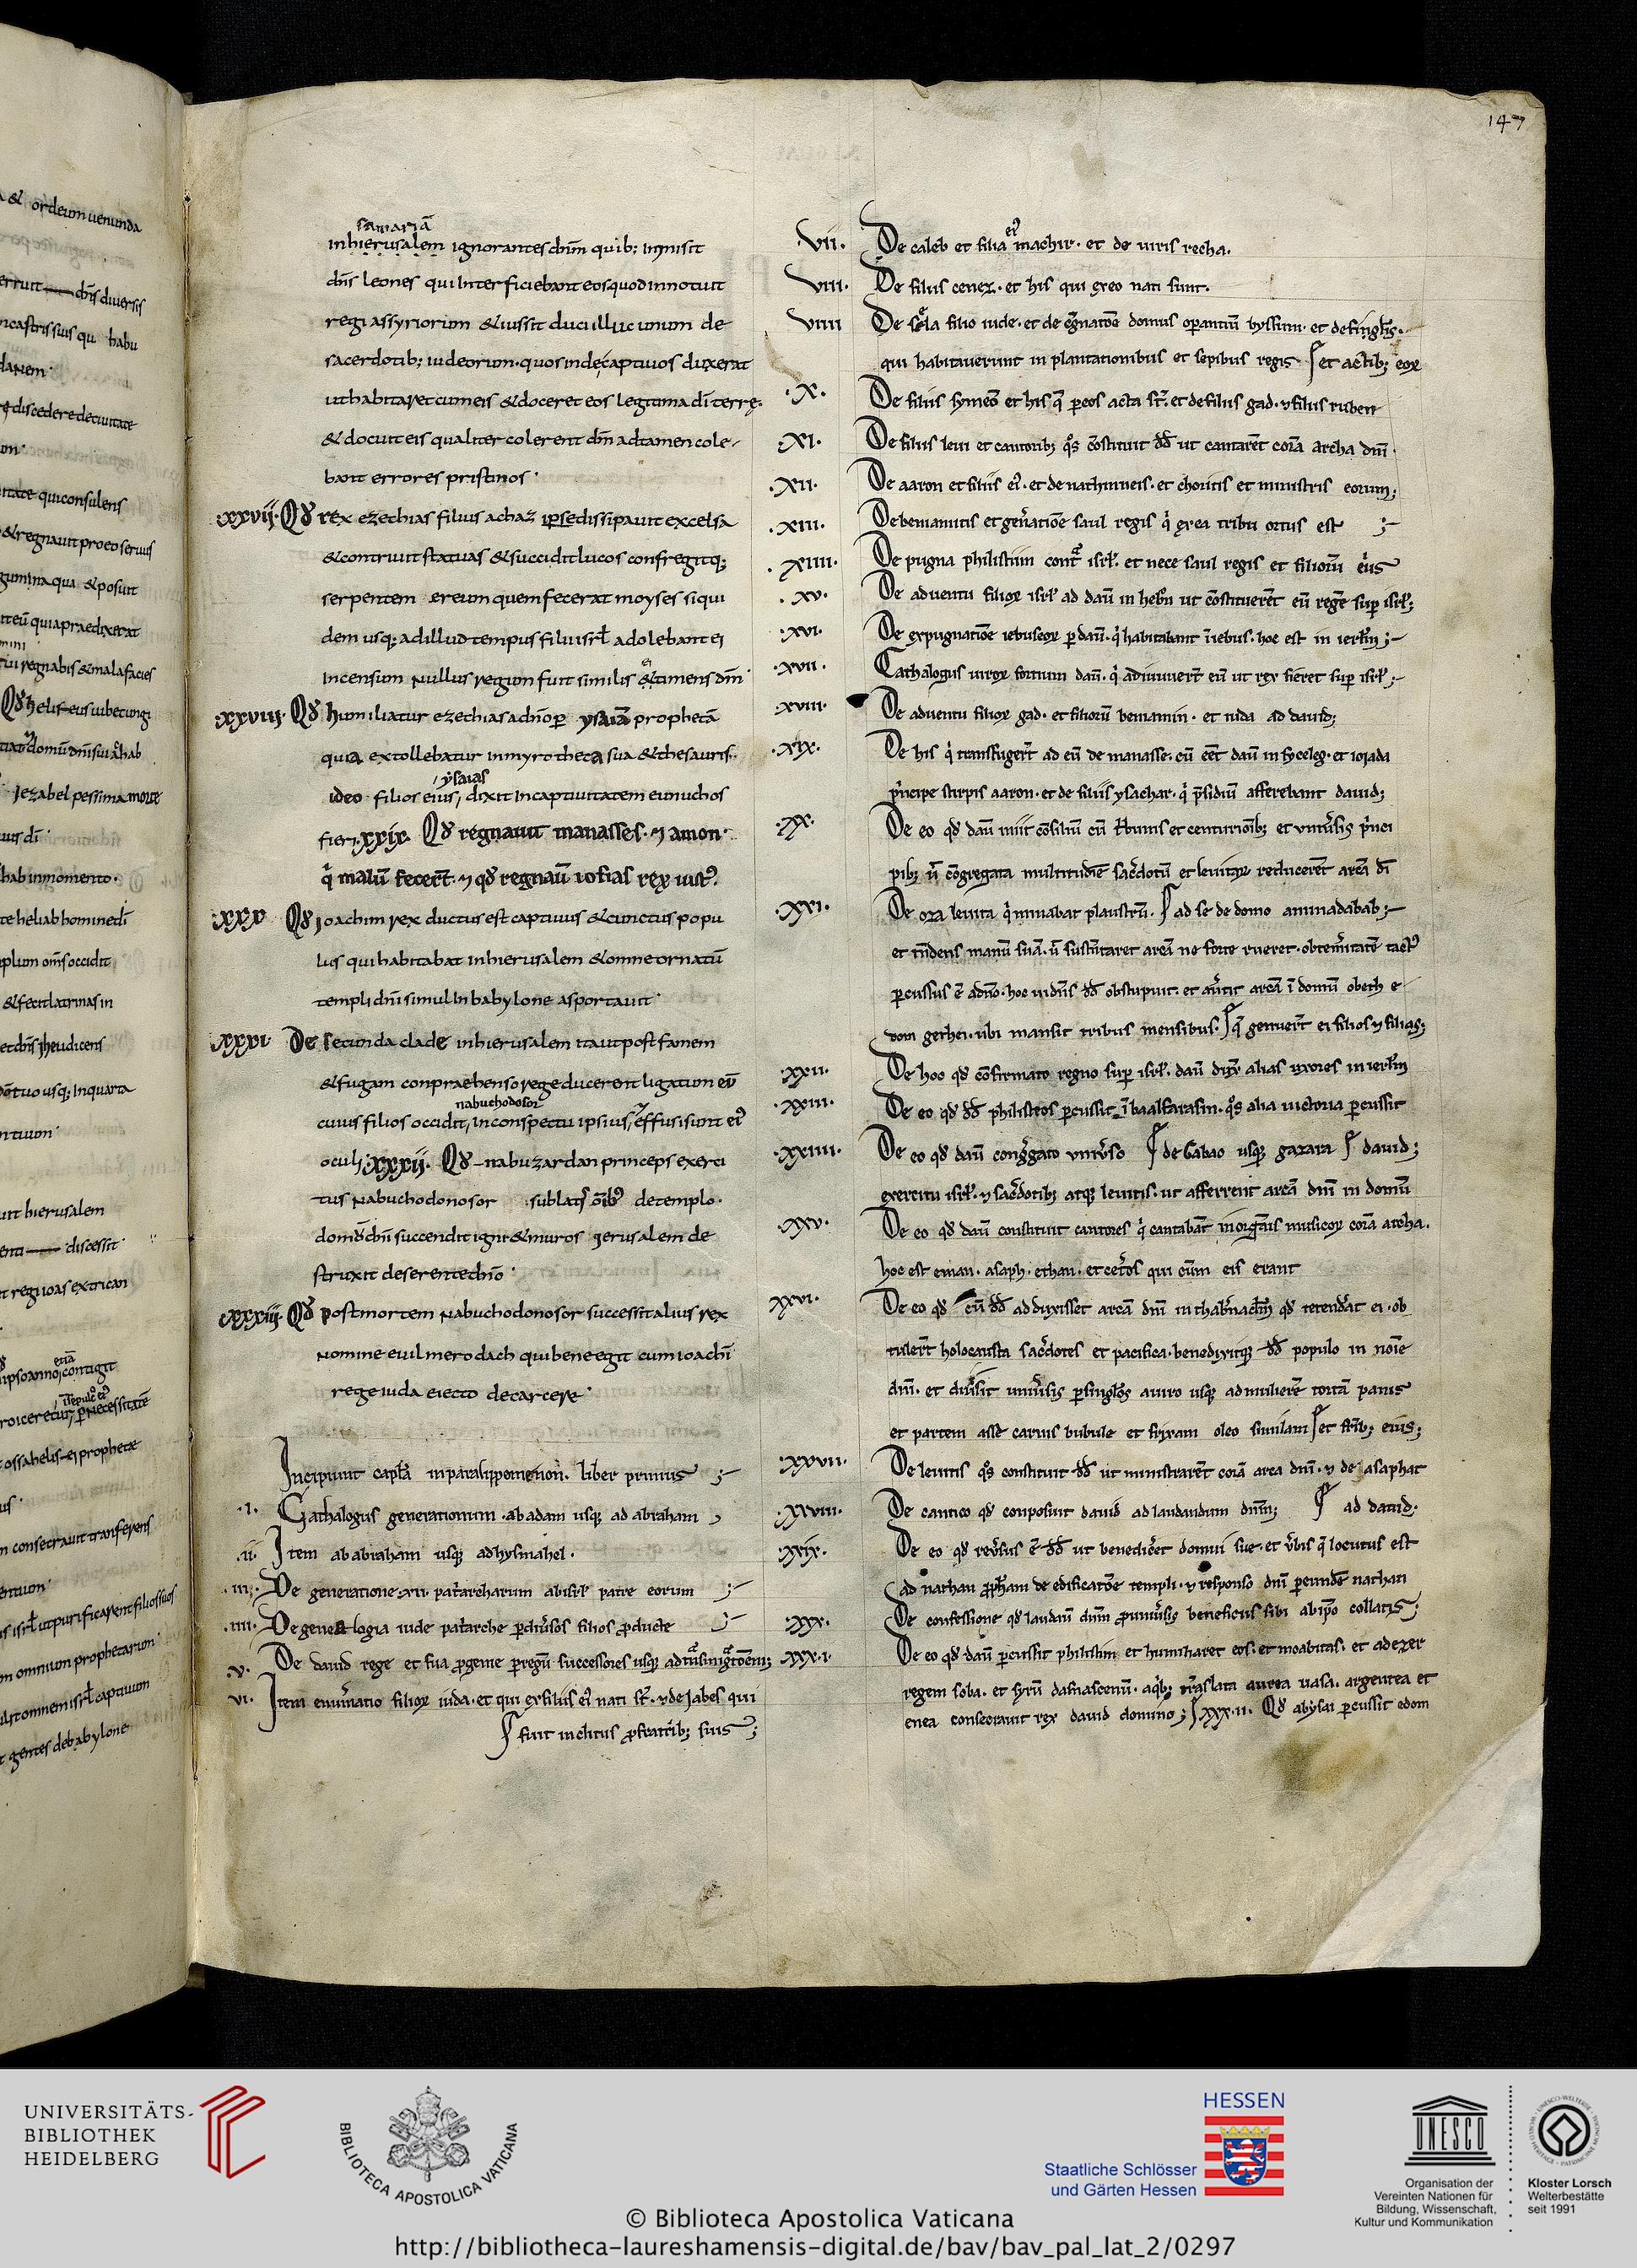 147
samariā
inhierusalem ignorantes dnm̄ quib; inmisit
dn̄s leones qui interficiebant eos quod innotuit
regi assyriorum & iussit duci illuc unum de
sacerdotib; iudeorum. quos inde captiuos duxerat
ut habitaret cum eis & doceret eos legitima dī terrę.
& docuit eis qualiter colerent dn̄m adtamen cole-
bant errores pristinos.
xxvii. Qd̄ rex ezechias filius achaz ipse dissipauit excelsa
& contriuit statuas & succidit lucos confregitq;
serpentem ereum quem fecerat moyses siqui
dem usq; ad illud tempus filii isrł adolebant ei
incensum nullus regum fuit similis ei timens dn̄m
xxviii. Qd̄ humiliatur ezechias adn̄o ꝑ ysaiā prophetā
quia extollebatur in myrotheca sua & thesauris.
ysaias
ideo filios eius, dixit in captiuitatem eunuchos
fieri. xxix. Qd̄ regnauit manasses. ⁊ amon.
q̇ malū fecer̄t. ⁊ qd̄ regnaū iosias rex iust᷒.
xxx Qd̄ ioachim rex ductus est captiuus & cunctus popu
lus qui habitabat in hierusalem & omne ornatū
templi dn̄i simul in babylone asportauit.
xxxi De secunda clade in hierusalem ita ut post famem
& fugam conpraehenso rege ducerent ligatum eū
nabuchodosor
cuius filios occidit, in conspectu ipsius, effusi sunt ei᷒
oculi. xxxii. Qd̄ nabuzardan princeps exerci
tus nabuchodonosor sublatis om̄ib᷒ de templo.
domū dn̄i succendit igni & muros ierusalem de
struxit deserente dn̄o.
xxxiii. Qd̄ post mortem nabuchodonosor successit alius rex
nomine euilmerodach qui bene egit cum ioachī
rege iuda eiecto de carcere.
Incipiunt capła in paralippomenon. liber primus ;-
.i. Cathalogus generationum. ab adam usq; ad abraham
.ii. Item ab abraham usq; ad hysmahel.
.iii. De generatione .xii. patͥarcharum ab isrł patre eorum ;-
.iiii. De genealogia iude patͥarche ꝑ diu͛sos filios ꝓducte ;-
.v. De dauid rege et sua ꝓgenie ꝑ regū successores usq; ad tͣnsmigͣtōem;
vi. Item enum͛atio filioꝝ iuda. et qui ex filiis ei᷒ nati sr̄. ⁊ de iabes qui
fuit inclitus ꝓ fratrib; suis;
.vii. De caleb et filia ei᷒ machir. et de uiris recha.
viii. De filiis cenez. et his qui ex eo nati sunt.
viiii De sela filio iude. et de cḡnatōe domus oꝑantiū byssum. et de singlis.
qui habitauerunt in plantationibus et sepibus regis et actib; eoꝝ
.x. De filiis symeō et his q̄ ꝑ eos acta sr̄. et de filiis gad. ⁊ filiis ruben
.xi. De filiis leui et cantorib; q̊s c̄stituit dd̄ ut cantarēt corā archa dn̄i.
.xii. De aaron et filiis ei᷒. et de nathinneis. et choritis et ministris eorum;
.xiii. De beniamitis et gen͛atiōe saul regis q̇ ex ea tribu ortus est ;-
.xiiii. De pugna philistiim contͣ isrł. et nece saul regis et filiorū eius
.xv. De aduentu filioꝝ isrł ad dauī in hebrō ut cōstituerēt eū regē suꝑ isrł;
.xvi. De expugnatiōe iebuseoꝝ ꝑ dauī. q̇ habitabant ī iebus. hoc est in ierłm ;-
.xvii. Cathalogus uiroꝝ fortium dauī. q̇ adiuuer̄t eū ut rex fieret suꝑ isrł ;-
.xviii. De aduentu filioꝝ gad. et filiorū beniamin. et iuda ad dauid;
.xix. De his q̇ transfuger̄t ad eū de manasse. cū eēt dauī in syceleg. et ioiada
pͥncipe stirpis aaron. et de filiis ysachar. q̇ p̄sidiū afferebant dauid;
.xx. De eo qd̄ dauī iniit cōsiliū cū tribunis et centuriōib; et uniu͛sis pͥnci
pib; ū cōgregata multitudīe sac͛dotū et leuitaꝝ reducerēt arcā dī
.xxi. De oza leuita q̇ minabat plaustrū. ad se de domo aminadabab ;-
et tn̄dens manū suā. ū sustn̄taret arcā ne forte rueret. ob tem͛itatē tact᷒
ꝑcussus ē a dn̄o. hoc uidn̄s dd̄ obstupuit. et au͛tit arcā ī domū obeth e-
dom gethei. ubi mansit tribus mensibus. q̄ genuer̄t ei filios ⁊ filias;
.xxii. De hoc qd̄ cōfirmato regno suꝑ isrł. dauī dux̄ alias uxores in ierłm
.xxiii. De eo qd̄ dd̄ philisteos ꝑcussit ī baalfarasin. q̊s alia uictoria ꝑcussit
.xxiiii. De eo qd̄ dauī congͣgato uniu͛so de gabao usq; gazara dauid;
exercitu isrł. ⁊ sac͛dotib; atq; leuitis. ut afferrent arcā dn̄i in domū
.xxv. De eo qd̄ dauī constituit cantores q̇ cantabāt in orgāis musicoꝝ corā archa.
hoc est eman. asaph. ethan. et cet͛os qui cum eis erant
xxvi. De eo qd̄ cū dd̄ adduxisset arcā dn̄i in thab͛nac̄lm qd̄ tetend͛at ei. ob
tuler̄t holocausta sac͛dotes et pacifica. benedixitq; dd̄ populo in noīe
dn̄i. et diuisit uniu͛sis ꝑ singłos a uiro usq; ad mulierē tortā panis
et partem assē carnis bubule et frixam oleo similam et frīb; eius;
.xxvii. De leuitis q̊s constituit dd̄ ut ministrarēt corā arca dn̄i. ⁊ de asaphat
.xxviii. De cantico qd̄ conposuit dauid ad laudandum dn̄m; ad dauid.
.xxix. De eo qd̄ reu͛sus ē dd̄ ut benedic͛et domui sue. et u͛bis q̄ locutus est
ad nathan ꝓph̄am de edificatōe templi. ⁊ responso dn̄i ꝑ eundē nathan
.xxx. De confessione qd̄ laudauī dn̄m ꝓ uniu͛sis beneficiis sibi ab ipō collatis;
.xxx.i. De eo qd̄ dauī ꝑcussit philistiim et humiliaret eos. et moabitas. et adezer
regem soba. et syrū damascenū. a q̇b; tͣnslata aurea uasa. argentea et
enea consecrauit rex dauid domino; xxx.ii. Qd̄ abysai ꝑcussit edom
UNIVERSITÄTS-
BIBLIOTHEK
HEIDELBERG
BIBLIOTECA APOSTOLICA VATICANA
HESSEN
Staatliche Schlösser
und Gärten Hessen
UNESCO
Organisation der
Vereinten Nationen für
Bildung, Wissenschaft,
Kultur und Kommunikation
Kloster Lorsch
Welterbestätte
seit 1991
© Biblioteca Apostolica Vaticana
http://bibliotheca-laureshamensis-digital.de/bav/bav_pal_lat_2/0297